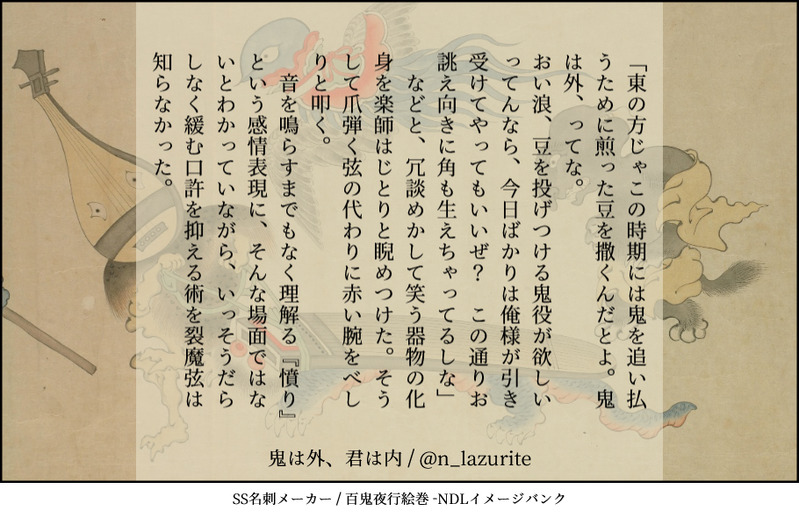 「東の方じゃこの時期には鬼を追い払
うために煎った豆を撒くんだとよ。鬼
は外、ってな。
おい浪、豆を投げつける鬼役が欲しい
ってんなら、今日ばかりは俺様が引き
受けてやってもいいぜ？　この通りお
誂え向きに角も生えちゃってるしな」
　などと、冗談めかして笑う器物の化
身を楽師はじとりと睨めつけた。そう
して爪弾く弦の代わりに赤い腕をべし
りと叩く。
　音を鳴らすまでもなく理解る『憤り』
という感情表現に、そんな場面ではな
いとわかっていながら、いっそうだら
しなく緩む口許を抑える術を裂魔弦は
知らなかった。
鬼は外、君は内 / @n_lazurite
SS名刺メーカー / 百鬼夜行絵巻 -NDLイメージバンク